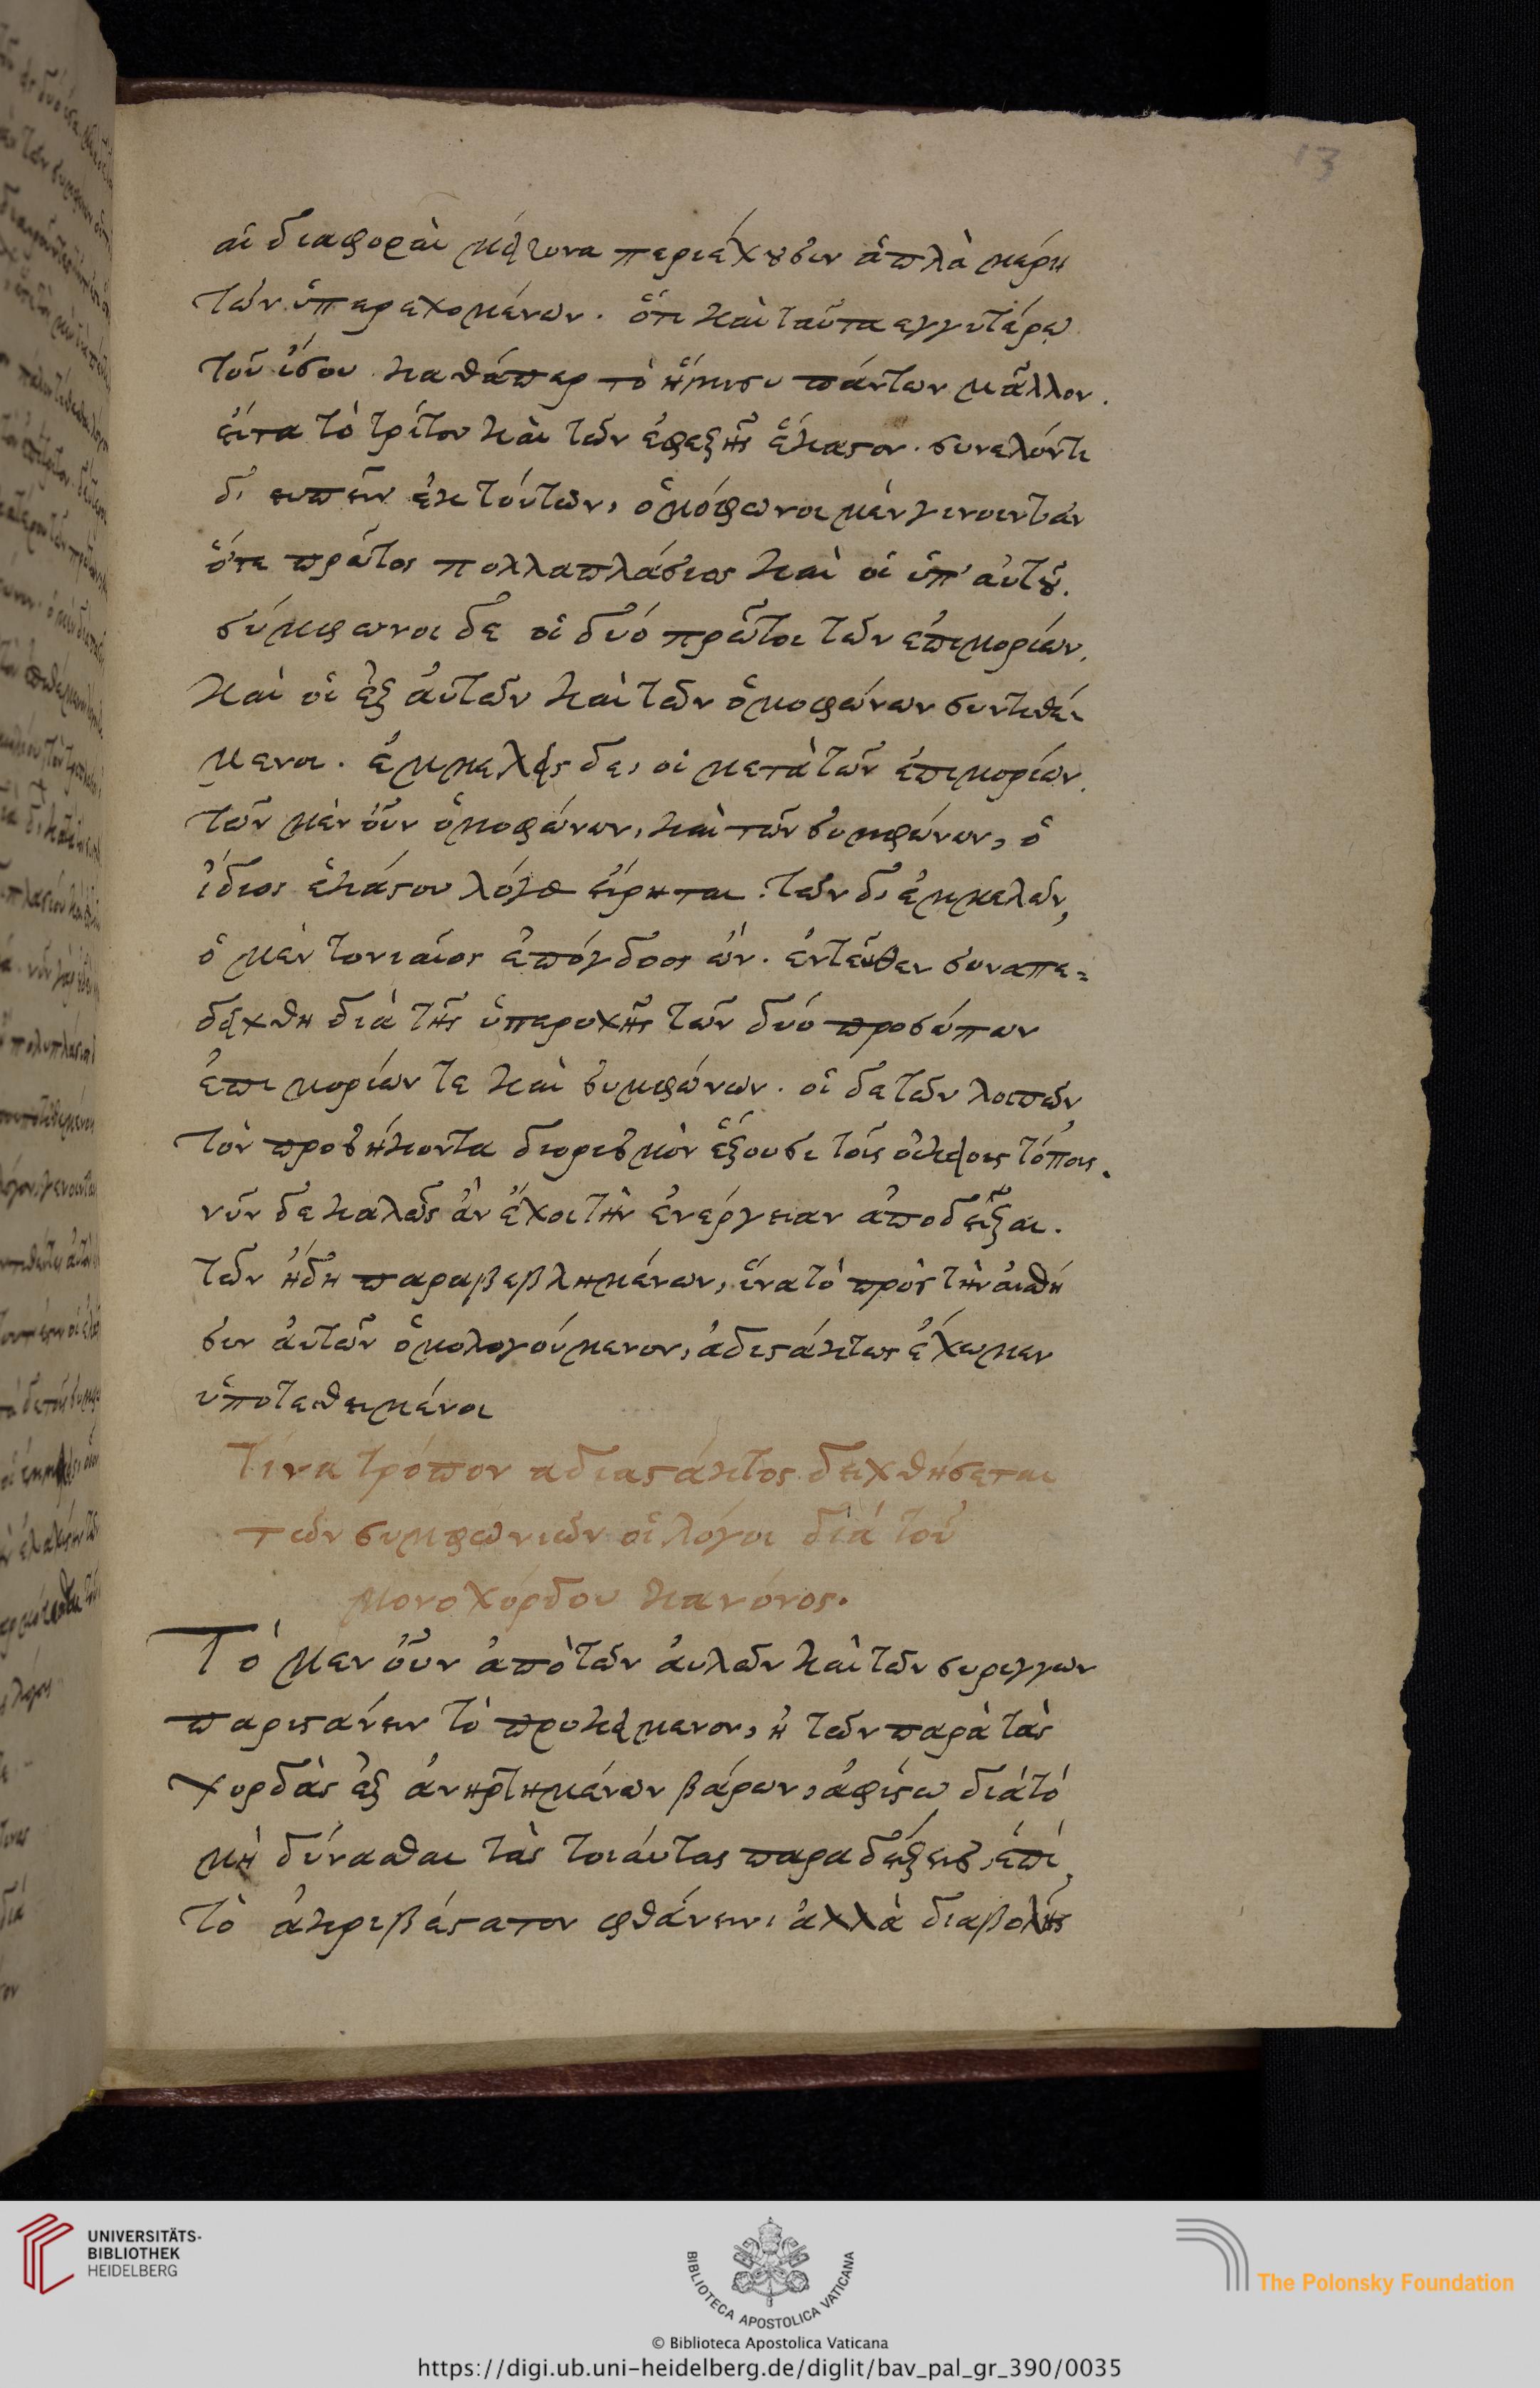 13
αἱ διαφοραὶ μείζονα περιέχουσιν ἁπλᾶ μέρη
τῶν ὑπερεχομένων. ὅτι καὶ ταῦτα εγγυτέρω
τοῦ ἴσου καθάπερ τὸ ἥμισυ πάντων μᾶλλον.
εἶτα τὸ τρίτον καὶ τῶν ἐφεξῆς ἕκαστον. συνελόντι
δ' ειπεῖν ἐκ τούτων, ὁμόφωνοι μὲν γινοιντ αν
ὅτε πρῶτος πολλαπλάσιος καὶ οἱ ὑπ' αὐτοῦ.
σύμφωνοι δε οἱ δυό πρῶτοι τῶν ἐπιμορίων.
καὶ οἱ ἐξ αὐτῶν καὶ τῶν ὁμοφώνων συντιθέ
μενοι. ἐμμελεῖς δε, οἱ μετὰ τῶν ἐπιμορίων.
τῶν μὲν οὖν ὁμοφώνων, καὶ τῶν συμφώνων, ὁ
ἴδιος ἑκάστου λόγος εἴρηται. τῶν δ' ἐμμελῶν,
ὁ μὲν τονιαῖος ἐπόγδοος ὤν. ἐντεῦθεν συναπε-
δείχθη διὰ τῆς ὑπεροχῆς τῶν δυό προσώπων
ἐπιμορίων τε καὶ συμφώνων. οἱ δε τῶν λοιπῶν
τὸν προσήκοντα διορισμὸν ἕξουσι τοῖς οἰκείοις τόποις.
νῦν δε καλῶς ἂν ἔχοι τὴν ἐνέργειαν ἀποδεῖξαι.
τῶν ἤδη παραβεβλημένων, ἵνα τὸ πρὸς τὴν ἀισθη
σιν ἀυτῶν ὁμολογούμενον, ἀδιστάκτως ἔχωμεν
ὑποτεθειμένοι
Τίνα τρόπον αδιαστάκτος δειχθήσεται
τῶν συμφωνιῶν οἱ λόγοι διά τοῦ
μονοχόρδου κανόνος.
Τὸ μεν οὖν ἀπὸ τῶν ἀυλῶν καὶ τῶν συριγγων
παριστάνειν τὸ προκείμενον, ἢ τῶν παρὰ τὰς
χορδὰς ἐξ ἀνηρτημένων βάρων, ἀφίσω διὰ τὸ
μὴ δύνασθαι τὰς τοιάυτας παραδείξεις ἐπὶ
τὸ ἀκριβέστατον φθάνειν, ἀλλὰ διαβολῆς
UNIVERSITÄTS-
BIBLIOTHEK
HEIDELBERG
BIBLIOTECA APOSTOLICA VATICANA
The Polonsky Foundation
© Biblioteca Apostolica Vaticana
https://digi.ub.uni-heidelberg.de/diglit/bav_pal_gr_390/0035